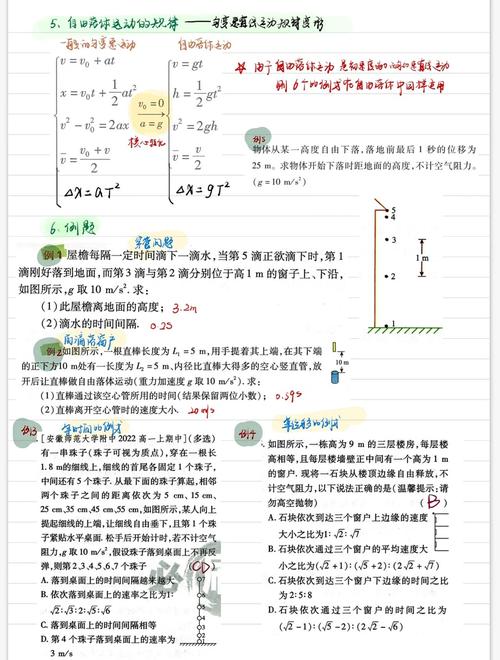 5、自由落体运动的规律 ——匀变速直线运动规律变形
一般的匀变速运动
自由落体运动
v = v₀ + at
x = v₀t + 1/2 at²
v² − v₀² = 2ax
v̄ = (v₀ + v)/2
Δx = aT²
v₀ = 0
a = g
v = gt
h = 1/2 gt²
v² = 2gh
v̄ = v/2
Δx = gT²
例5
物体从某一高度自由下落,落地前最后 1 秒的位移为
25 m。求物体开始下落时距地面的高度,不计空气阻力。
(g = 10 m/s²)
6、例题
例1 屋檐每隔一定时间滴下一滴水,当第 5 滴正欲滴下时,第 1
滴刚好落到地面,而第 3 滴与第 2 滴分别位于高 1 m 的窗子上、下沿,
如图所示,g 取 10 m/s². 求:
(1)此屋檐离地面的高度; 3.2m
(2)滴水的时间间隔. 0.2s
5
4
3
2
1
1 m
例2 如图所示,一根直棒长度为 L₁ = 5 m,用手提着其上端,在其下端
的正下方10 m处有一长度为 L₂ = 5 m、内径比直棒大得多的空心竖直管,放
开后让直棒做自由落体运动(重力加速度 g 取 10 m/s²). 求:
(1)直棒通过该空心管所用的时间(结果保留两位小数);
(2)直棒离开空心管时的速度大小. 20m/s
10 m
例3
[安徽师范大学附中 2022 高一上期中](多选)
有一串珠子(珠子可视为质点),穿在一根长
1.8 m的细线上,细线的首尾各固定 1 个珠子,
中间还有 5 个珠子. 从最下面的珠子算起,相邻
两个珠子之间的距离依次为 5 cm、15 cm、
25 cm、35 cm、45 cm、55 cm,如图所示,某人向上
提起细线的上端,让细线自由垂下,且第 1 个珠
子紧贴水平桌面. 松手后开始计时,若不计空气
阻力,g 取 10 m/s²,假设珠子落到桌面上不再反
弹,则第 2、3、4、5、6、7 个珠子 (CD)
A. 落到桌面上的时间间隔越来越大
B. 依次落到桌面上的速率之比为1:
√2:√3:2:√5:√6
C. 落到桌面上的时间间隔相等
D. 第 4 个珠子落到桌面上的速率为
3 m/s
例4
如图所示,一栋高为 9 m 的三层房,每层楼
高相等,且每层楼墙壁正中间有一个高为 1 m
的窗户. 现将一石块从楼顶边缘自由释放,不
计空气阻力,以下说法正确的是(温馨提示:请
勿高空抛物) (B)
A. 石块依次到达三个窗户上边缘的速度
大小之比为1:√2:√7
B. 石块依次通过三个窗户的平均速度大
小之比为(√2 + 1):(√5 + 2):(2√2 + √7)
C. 石块依次到达三个窗户下边缘的时间之比
为 2:5:8
D. 石块依次通过三个窗户的时间之比为
(√2 − 1):(√5 − 2):(2√2 − √6)